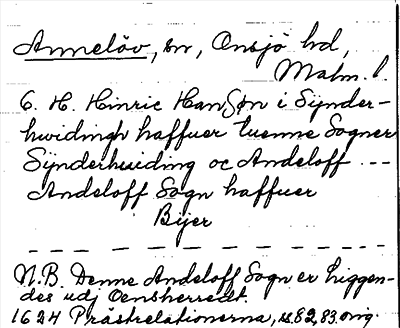 Annelöv, sn, Onsjö hd,
Malm. l.
6. H. Hinric Hansøn i Sÿnder-
hwidingh haffuer tuenne Sogner
Sÿnderhuiding oc Andeloff ---
Andeloff Sogn haffuer
Bÿer
N.B. Denne Andeloff Sogn er liggen-
des udj Oensherredt.
1624 Prästrelationerna, s. 82, 83. orig.